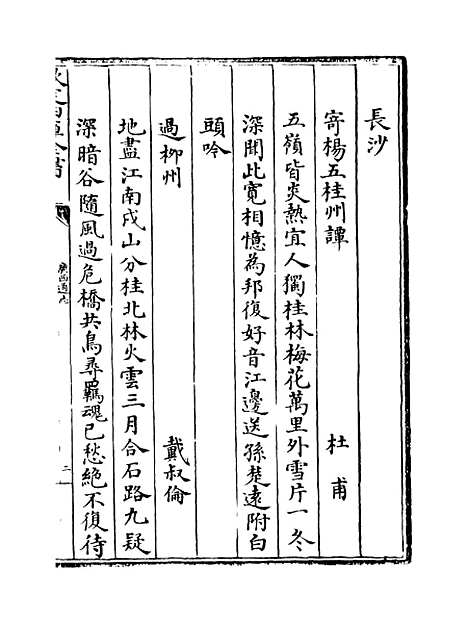 長沙
寄楊五桂州譚　杜甫
五嶺皆炎熱宜人獨桂林梅花萬里外雪片一冬
深聞此寛相憶為邦復好音江邊送孫楚逺附白
頭吟
過柳州　戴叔倫
地盡江南戍山分桂北林火雲三月合石路九疑
深暗谷隨風過危橋共鳥尋羈魂已愁絶不復待
廣西通志